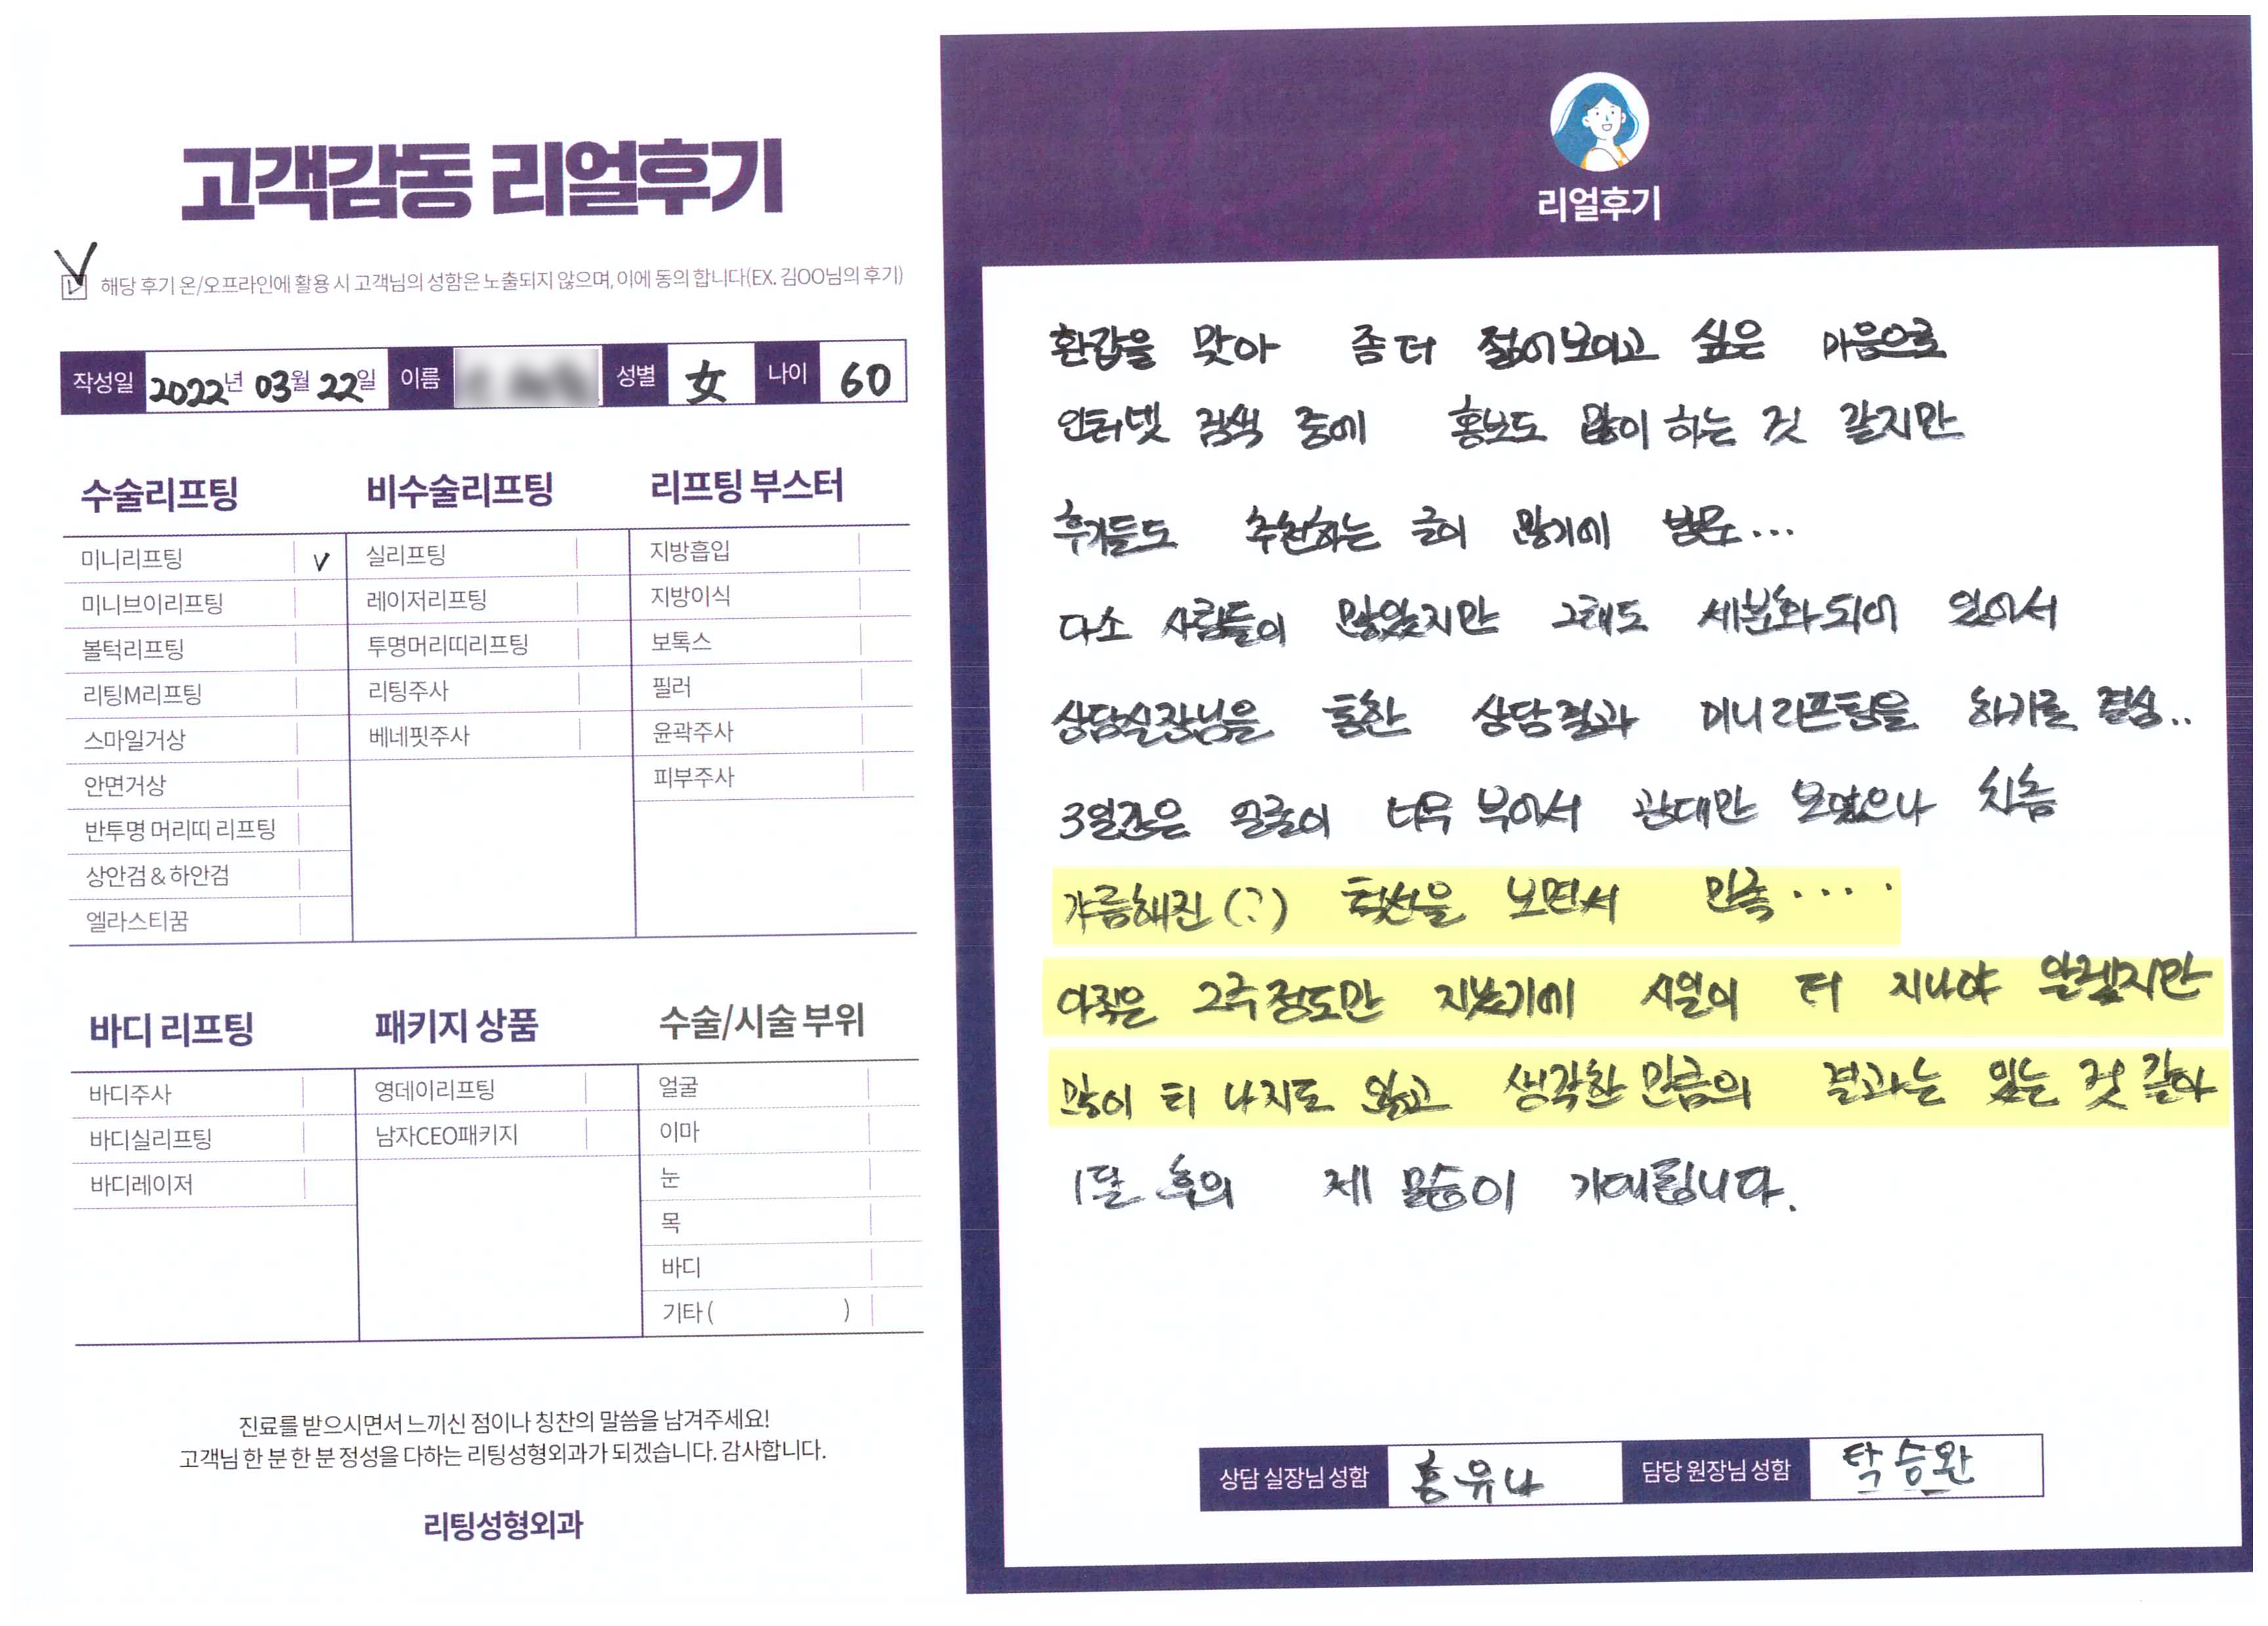 고객감동 리얼후기
해당 후기 온/오프라인에 활용 시 고객님의 성함은 노출되지 않으며, 이에 동의 합니다(EX. 김OO님의 후기)
작성일 2022년 03월 22일 이름 성별 女 나이 60
수술리프팅
미니리프팅 V
미니브이리프팅
볼턱리프팅
리팅M리프팅
스마일거상
안면거상
반투명 머리띠 리프팅
상안검 & 하안검
엘라스티꿈
비수술리프팅
실리프팅
레이저리프팅
투명머리띠리프팅
리팅주사
베네핏주사
리프팅 부스터
지방흡입
지방이식
보톡스
필러
윤곽주사
피부주사
바디 리프팅
바디주사
바디실리프팅
바디레이저
패키지 상품
영데이리프팅
남자CEO패키지
수술/시술 부위
얼굴
이마
눈
목
바디
기타 ( )
진료를 받으시면서 느끼신 점이나 칭찬의 말씀을 남겨주세요!
고객님 한 분 한 분 정성을 다하는 리팅성형외과가 되겠습니다. 감사합니다.
리팅성형외과
리얼후기
환갑을 맞아 좀 더 젊어보이고 싶은 마음으로
인터넷 검색 중에 홍보도 많이 하는 것 같지만
후기들도 추천하는 글이 많기에 방문...
다소 사람들이 많았지만 그래도 세분화되어 있어서
상담실장님을 통한 상담결과 미니리프팅을 하기로 결심..
3일간은 얼굴이 너무 부어서 광대만 보였으나 차츰
갸름해진(?) 턱선을 보면서 만족....
아직은 2주정도만 지났기에 시일이 더 지나야 알겠지만
많이 티 나지도 않고 생각한 만큼의 결과는 있는 것 같아
1달 후의 제 모습이 기대됩니다.
상담 실장님 성함 홍유나 담당 원장님 성함 탁승완